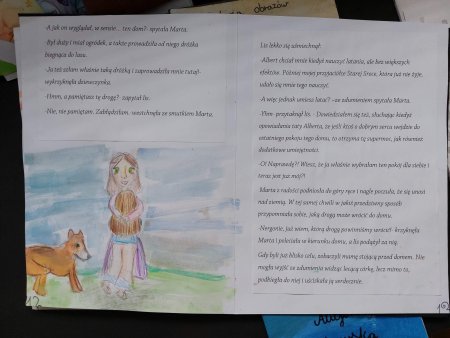 obrazów
-A jak on wyglądał, w sensie... ten dom?- spytała Marta.
-Był duży i miał ogródek, a także prowadziła od niego dróżka
biegnąca do lasu.
-Ja też szłam właśnie taką dróżką i zaprowadziła mnie tutaj!-
wykrzyknęła dziewczynka.
-Hmm, a pamiętasz tę drogę?- zapytał lis.
-Nie, nie pamiętam. Zabłądziłam.-westchnęła ze smutkiem Marta.
12
Lis lekko się uśmiechnął:
-Albert chciał mnie kiedyś nauczyć latania, ale bez większych
efektów. Później mojej przyjaciółce Starej Sroce, która już nie żyje,
udało się mnie tego nauczyć.
-A więc jednak umiesz latać? - ze zdumieniem spytała Marta.
-Yhm- przyznał lis. - Dowiedziałem się też, słuchając kiedyś
opowiadania taty Alberta, że jeśli ktoś o dobrym sercu wejdzie do
ostatniego pokoju tego domu, to otrzyma tę supermoc, jak również
dodatkowe umiejętności.
-O! Naprawdę?! Wiesz, że ja właśnie wybrałam ten pokój dla siebie i
teraz jest już mój?!
Marta z radości podniosła do góry ręce i nagle poczuła, że się unosi
nad ziemią. W tej samej chwili w jakiś przedziwny sposób
przypomniała sobie, jaką drogą może wrócić do domu.
-Nergonie, już wiem, którą drogą powinniśmy wrócić!- krzyknęła
Marta i poleciała w kierunku domu, a lis podążył za nią.
Gdy byli już blisko celu, zobaczyli mamę stojącą przed domem. Nie
mogła wyjść ze zdumienia widząc lecącą córkę, lecz mimo to,
podbiegła do niej i uściskała ją serdecznie.